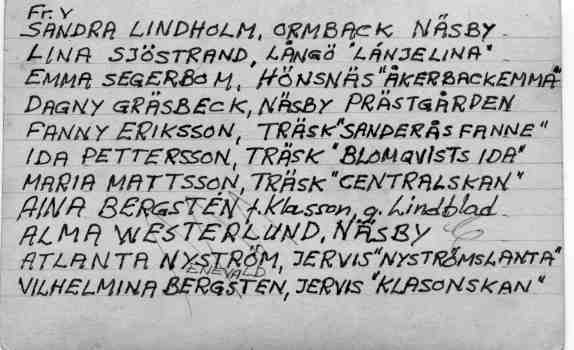 Fr. V
SANDRA LINDHOLM, ORMBACK NÄSBY
LINA SJÖSTRAND, LÅNGÖ "LÅNJELINA"
EMMA SEGERBOM, HÖNSNÄS "ÅKERBACKEMMA"
DAGNY GRÄSBECK, NÄSBY PRÄSTGÅRDEN
FANNY ERIKSSON, TRÄSK "SANDERÅSFANNE"
IDA PETTERSSON, TRÄSK "BLOMQVISTS IDA"
MARIA MATTSSON, TRÄSK "CENTRALSKAN"
AINA BERGSTÉN f. Klasson, g. Lindblad
ALMA WESTERLUND, NÄSBY
ATLANTA NYSTRÖM, JERVIS "NYSTRÖMSLANTA"
ENEVALD
VILHELMINA BERGSTEN, JERVIS "KLASONSKAN"